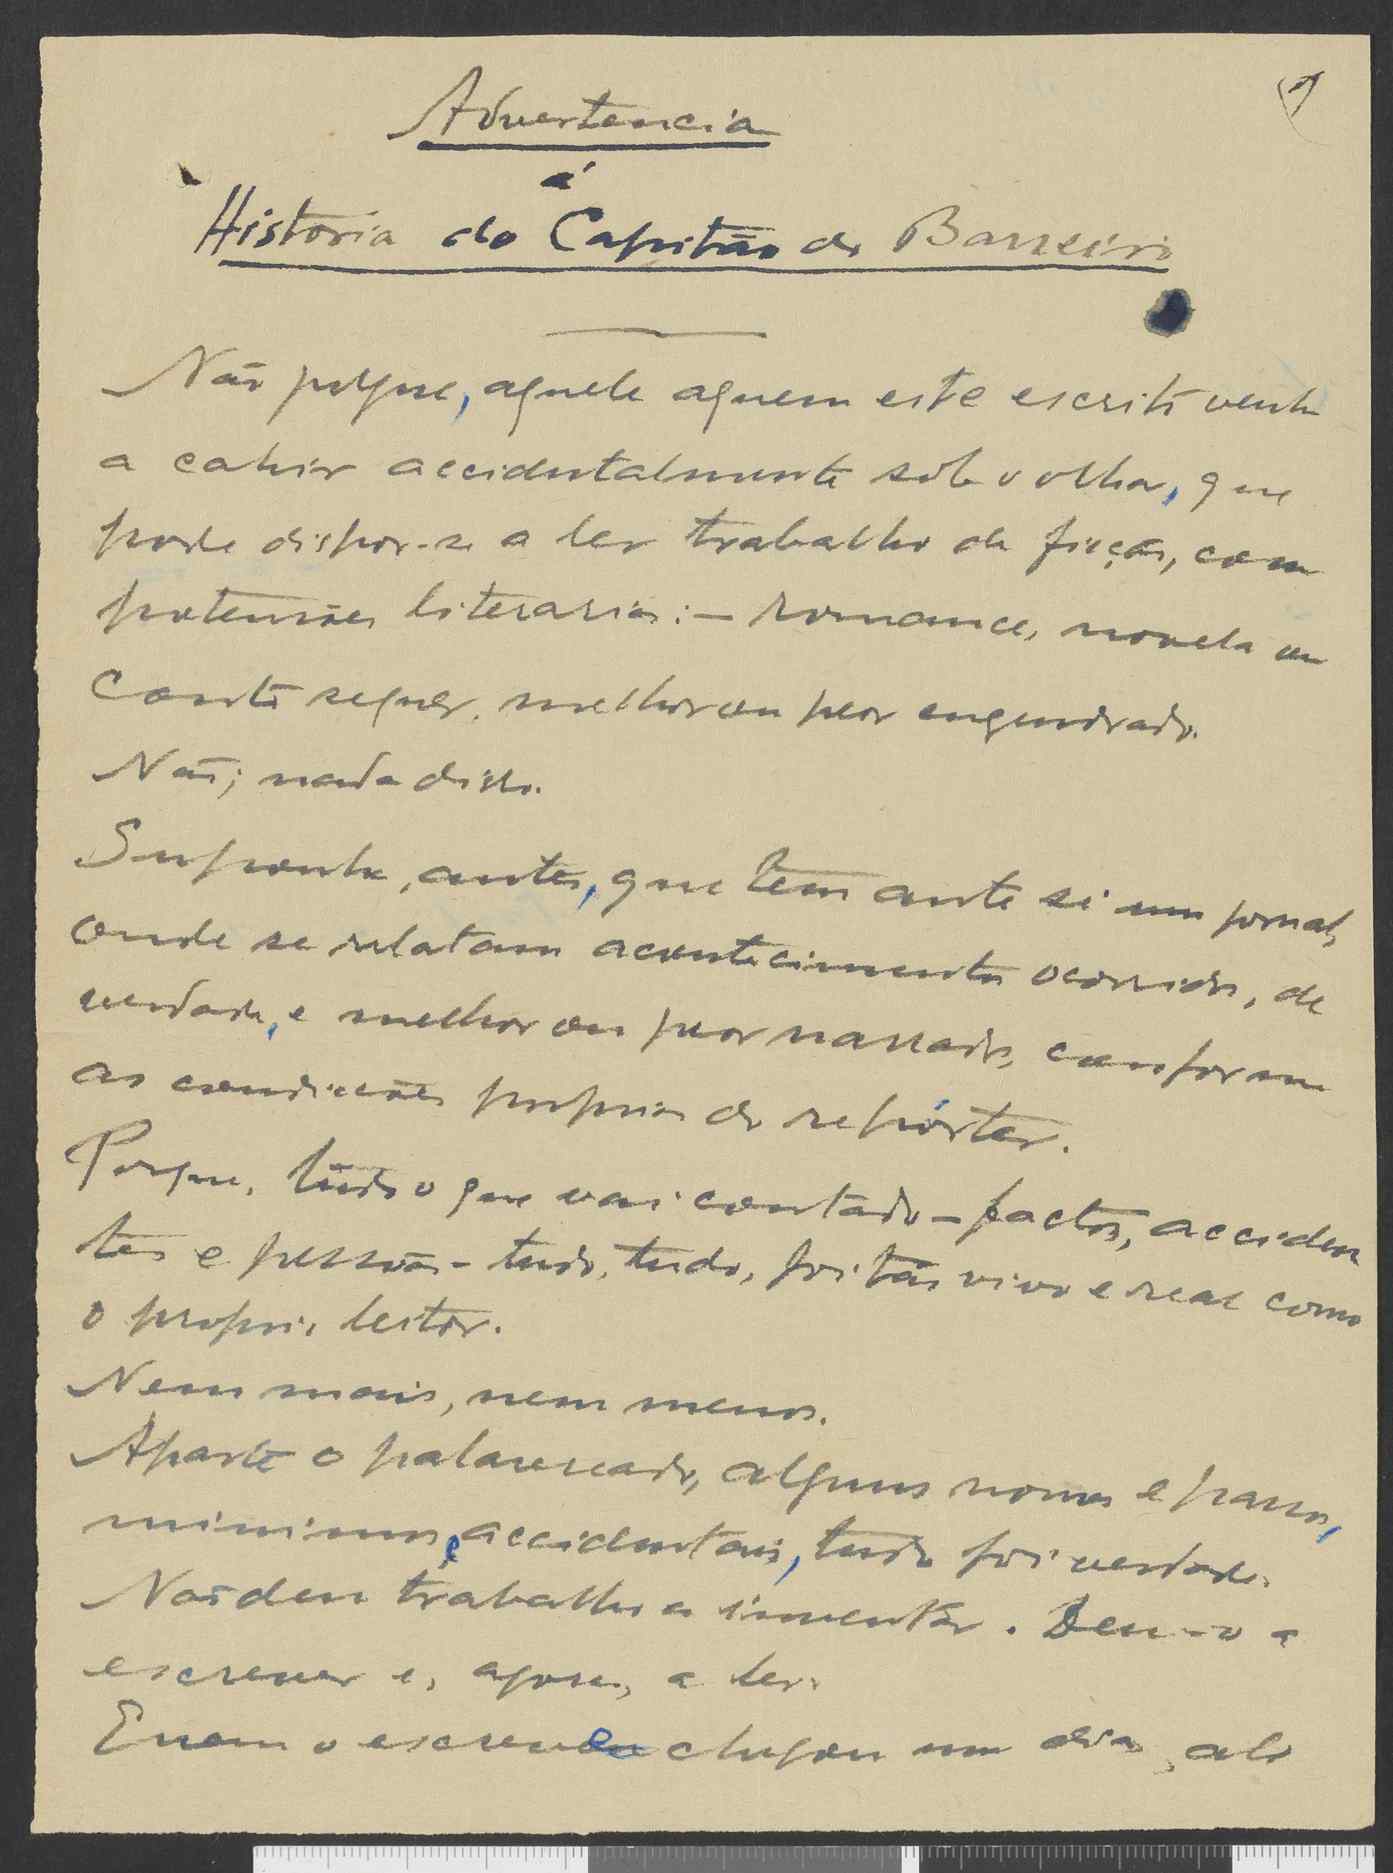 1)
Advertencia
á
Historia do Capitão do Barreiro
Não julgue, aquele aquem este escrito venha
a cahir accidentalmente sob o olhar, que
pode dispor-se a ler trabalho de ficção, com
pretensões literarias: — romance, novela ou
conto sequer, melhor ou peor engendrado.
Não; nada disso.
Suponha, antes, que tem ante si um jornal,
onde se relatam acontecimentos ocorridos, de
verdade, e melhor ou peor narrados, conforme
as condicções proprias do repórter.
Porque, tudo o que vai contado — factos, acciden
tes e pessoas — tudo, tudo, foi tão vivo e real como
o proprio leitor.
Nem mais, nem menos.
Aparte o palavreado, alguns nomes e passos,
minimos e accidentais, tudo foi verdade.
Não deu trabalho a inventar. Deu-o a
escrever e, agora, a ler.
Quem o escreveu chegou um dia, ao